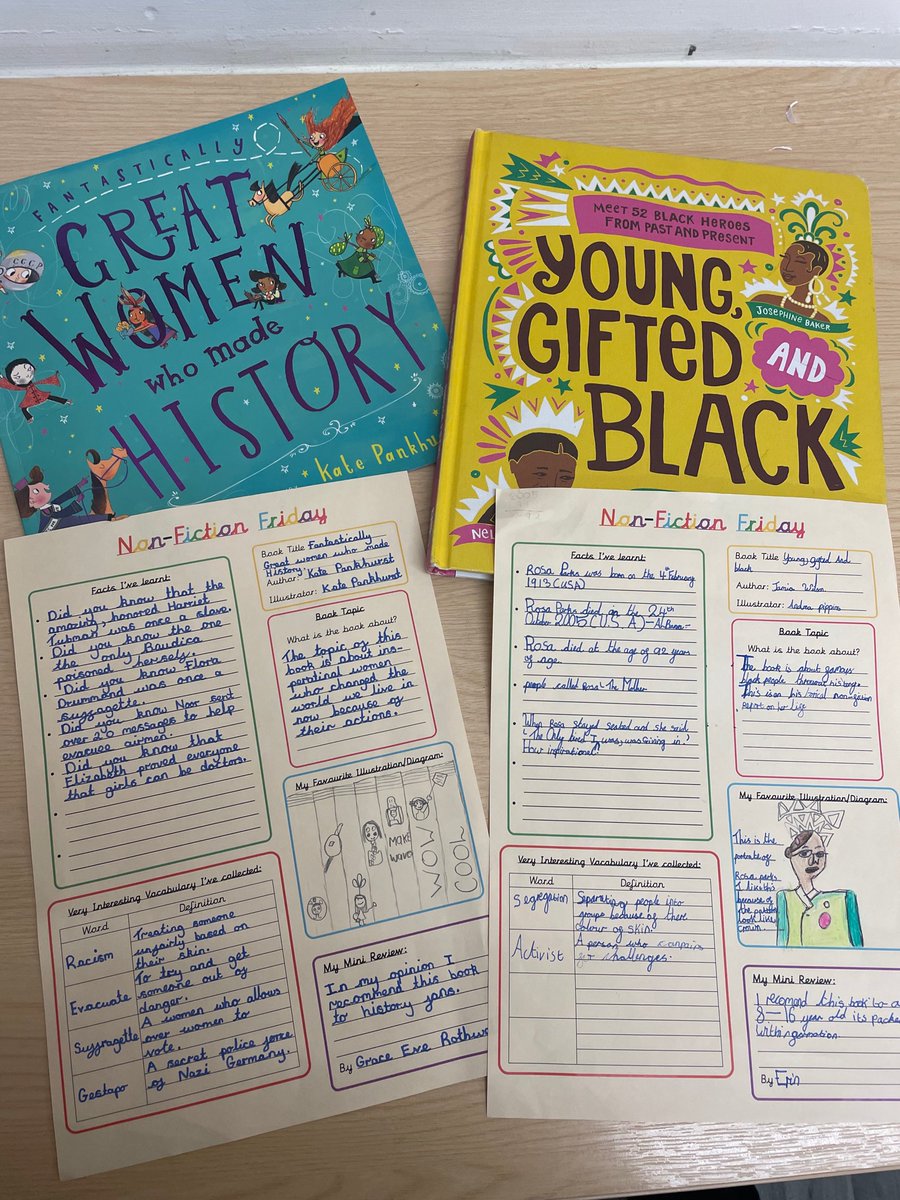 FANTASTICALLY
GREAT
WOMEN
who made
HISTORY
Kate Pankhu
CCCP
MEET 52 BLACK HEROES
FROM PAST AND PRESENT
YOUNG,
GIFTED
AND
BLACK
JOSEPHINE BAKER
NEL
Non-Fiction Friday
Facts I've learnt:
Did you know that the
amazing, honored Harriet
Tubman was once a slave.
Did you know the one
the only Baudica
poisoned herself.
Did you know Flora
Drummond was once a
suffragette.
Did you know Noor sent
over 20 messages to help
evacuee airmen.
Did you know that
Elizabeth proved everyone
that girls can be doctors.
Book Title Fantastically
Great women who made
History.
Author: Kate Pankhurst
Illustrator: Kate Pankhurst
Book Topic
What is the book about?
The topic of this
book is about ins-
peratinal women
who changed the
world we live in
now because of
their actions.
My Favourite Illustration/Diagram:
MAKE
WAVES
WOW
COOL
Very Interesting Vocabulary I've collected:
Word Definition
Racism Treating someone
unfairly based on
their skin.
Evacuate To try and get
someone out of
danger.
Suffragette A women who allows
over women to
vote.
Gestapo A secret police force
of Nazi Germany.
My Mini Review:
In my opinion I
recommend this book
to history fans.
By Grace Eve Rothw
Non-Fiction Friday
Facts I've learnt:
Rosa Parks was born on the 4th February
1913 (USA)
Rosa Parks died in the 24th
October 2005 (U S A)
Rosa died at the age of 92 years
of age.
people called Rosa The Mother
When Rosa stayed seated and she said
'The Only tired I was, was giving in'
How inspirational!
Book Title Young, gifted and
black
Author: Jamia Wilson
Illustrator: Andrea pippins
Book Topic
What is the book about?
The book is about
black people
This is an his torical non-fiction
report on her life
My Favourite Illustration/Diagram:
This is the
portraite of
Rosa parks
I like this
because of
the pattern
look like
crown.
Very Interesting Vocabulary I've collected:
Word Definition
Segregation Separating people into
groups because of there
colour of skin
Activist A person who
for challenges.
My Mini Review:
I recomend this book to a
8-16 year old its packe
with
By Erin